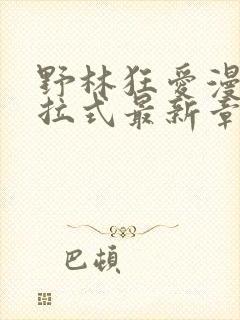 野林狂愛漫
拉式最新章
巴頓